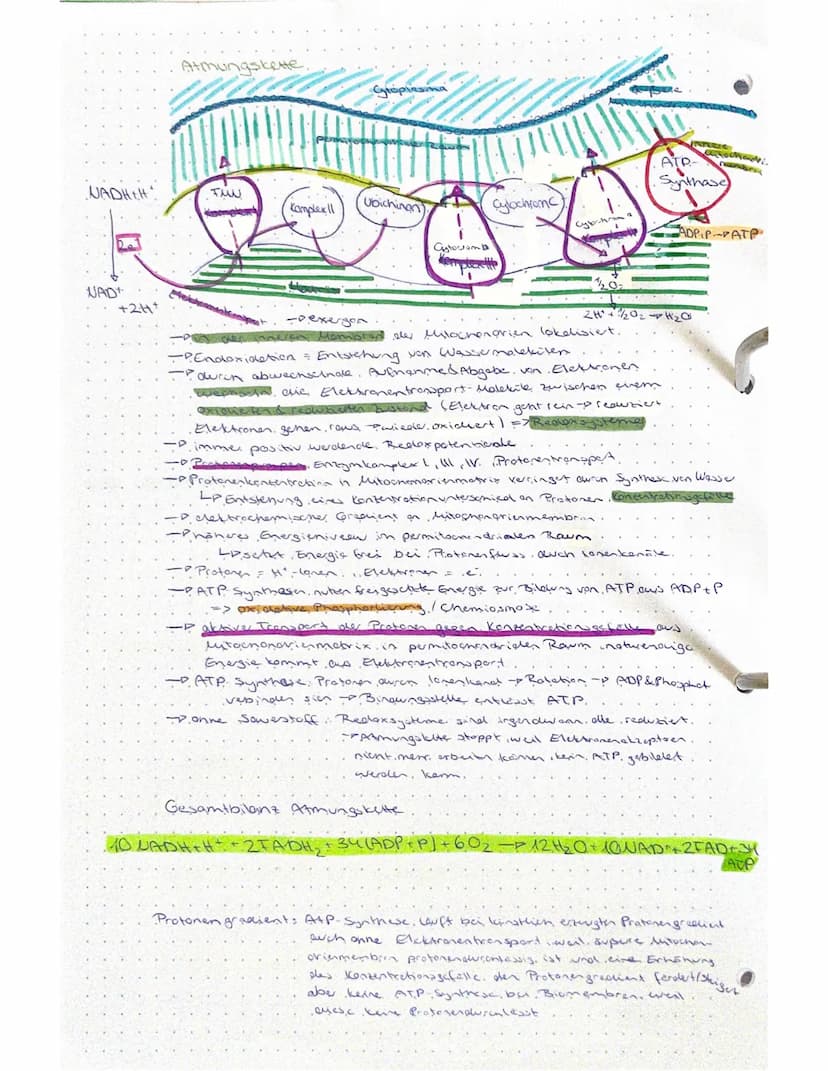 Atmungskette
Cytoplasma
äußere
perimitochondrialer Raum
innere
ATP-
Synthase
NADH+H⁺
FMN
Komplex I
Komplex II
Ubichinon
Cytochrom C
Cytochrom b
Komplex III
Cytochrom a
2e⁻
ADP+P → ATP
Matrix
½O₂
NAD⁺
+2H⁺
2H⁺ + ½O₂ → H₂O
Elektronentransport → exergon
→ in der inneren Membran der Mitochondrien lokalisiert
→ Endoxidation = Entstehung von Wassermolekülen
→ durch abwechselnde Aufnahme & Abgabe von Elektronen
wechseln die Elektronentransport-Moleküle zwischen einem
oxidierten & reduzierten Zustand (Elektron geht rein → reduziert
Elektronen gehen raus → wieder oxidiert) => Redoxsysteme
→ immer positiv werdende Redoxpotentiale
→ Protonenpumpen Enzymkomplex I, III, IV Protonentransport
→ Protonenkonzentration in Mitochondrienmatrix verringert durch Synthese von Wasser
↳ Entstehung eines Konzentrationsunterschied an Protonen Konzentrationsgefälle
→ elektrochemischer Gradient an Mitochondrienmembran
→ höheres Energieniveau im perimitochondrialen Raum
↳ setzt Energie frei bei Protonenfluss durch Ionenkanäle
→ Protonen = H⁺-Ionen, Elektronen = e⁻
→ ATP Synthasen nutzen freigesetzte Energie zur Bildung von ATP aus ADP+P
=> oxidative Phosphorlierung / Chemiosmose
→ aktiver Transport der Protonen gegen Konzentrationsgefälle aus
Mitochondrienmatrix in perimitochondrialen Raum notwendige
Energie kommt aus Elektronentransport
→ ATP Synthase Protonen durch Ionenkanal → Rotation → ADP & Phosphat
verbinden sich → Bindungsstelle entlässt ATP
→ ohne Sauerstoff: Redoxsysteme sind irgendwann alle reduziert
→ Atmungskette stoppt weil Elektronenakzeptoren
nicht mehr arbeiten können, kein ATP gebildet
werden kann
Gesamtbilanz Atmungskette
10 NADH+H⁺ + 2FADH₂ + 34(ADP+P) + 6O₂ → 12H₂O + 10NAD⁺ + 2FAD + 34
ATP
Protonengradient: ATP-Synthese läuft bei künstlich erzeugten Protonengradient
auch ohne Elektronentransport weil Mitochon-
drienmembran protonendurchlässig ist und eine Erhöhung
des Konzentrationsgefälle den Protonengradient fördert/steigert
aber keine ATP-Synthese bei Biomembran weil
diese keine Protonen durchlässt